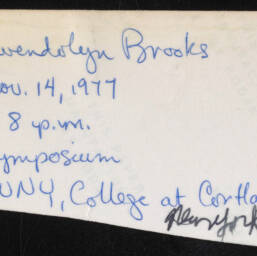 wendolyn Brooks
ov. 14, 1977
8 p.m.
ymposium
UNY, College at Cortla
New York